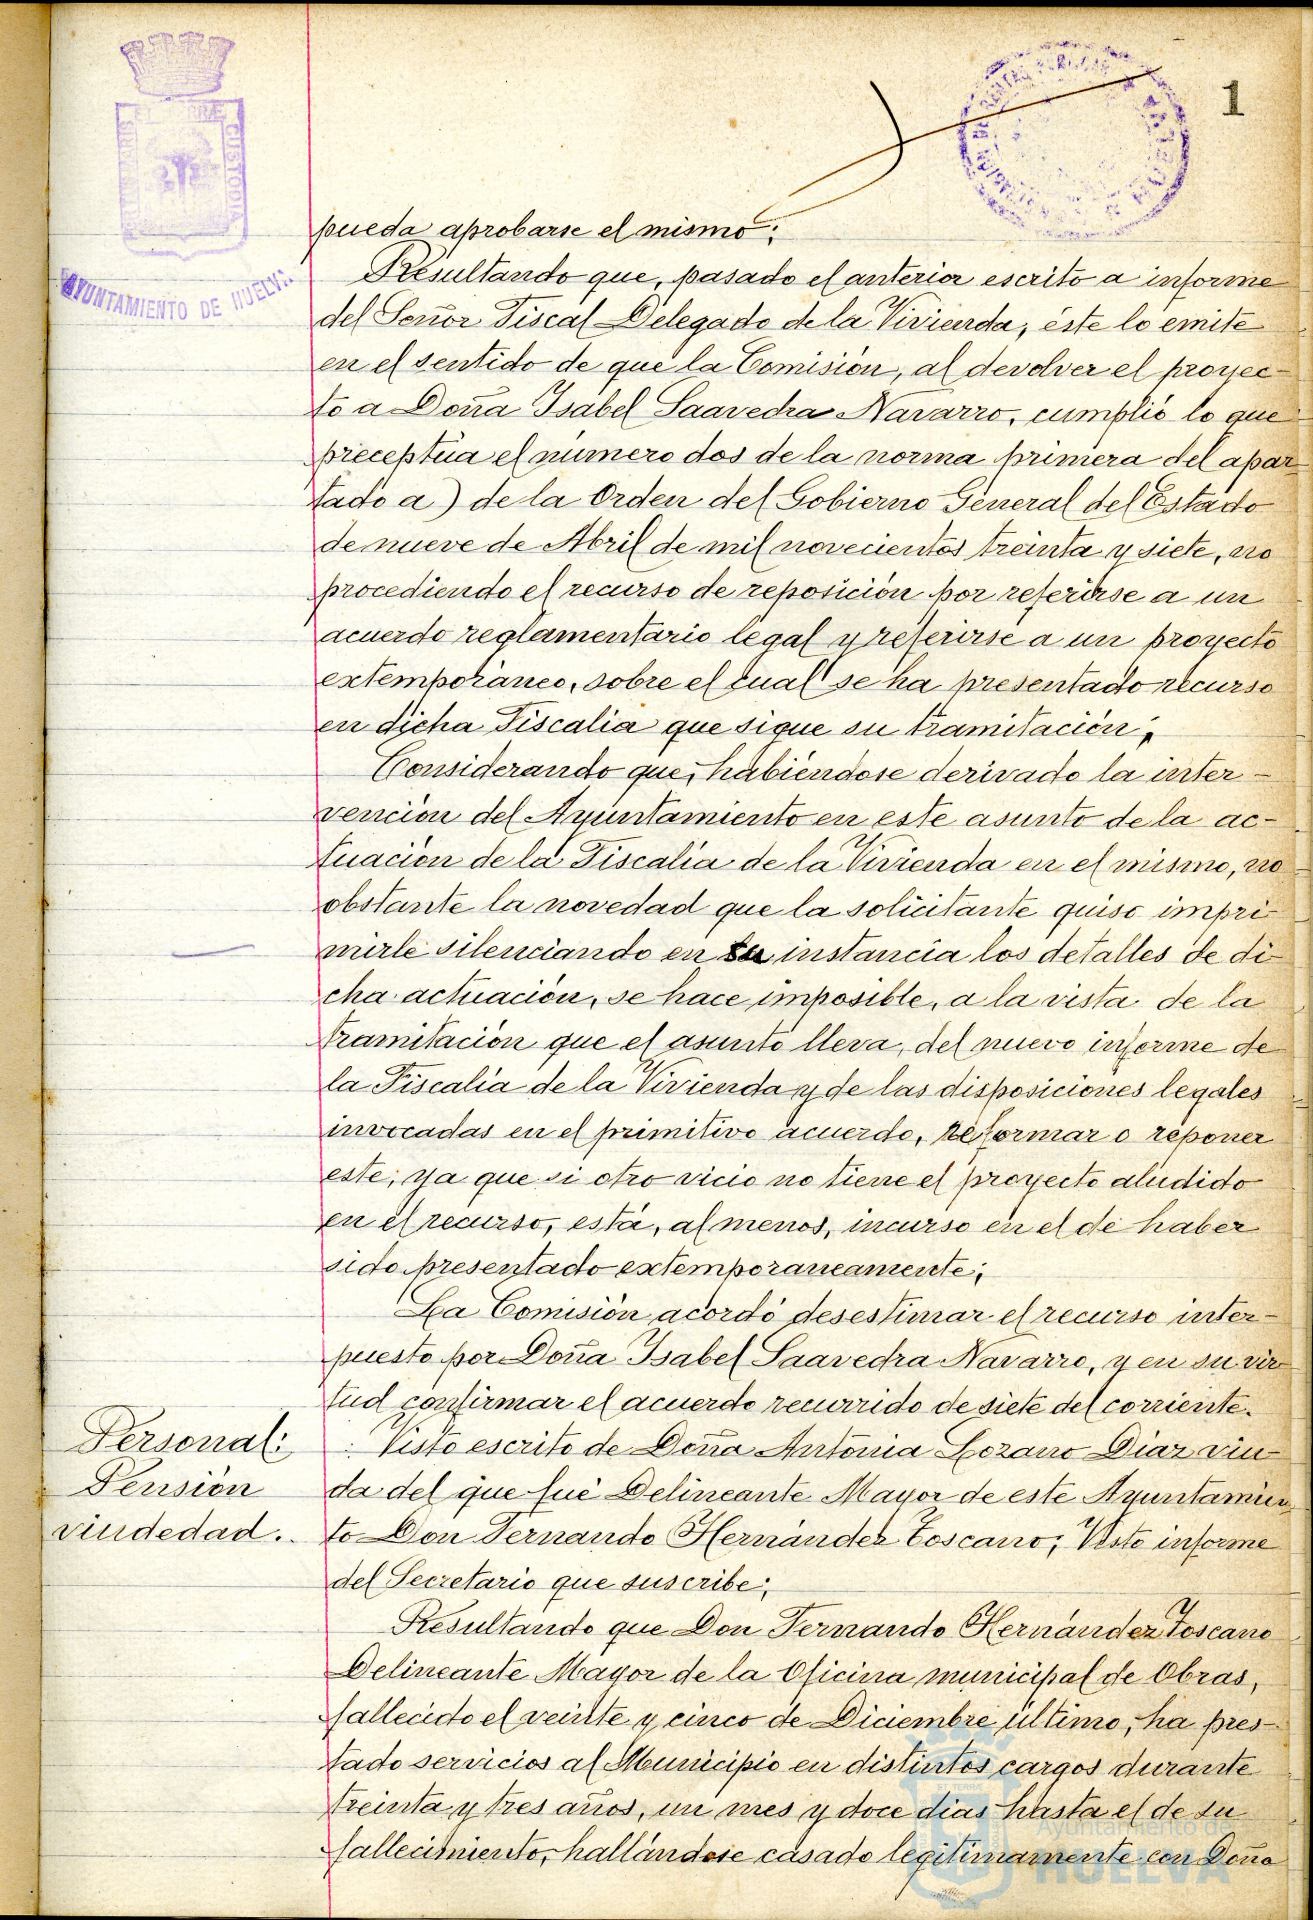 1
AYUNTAMIENTO DE HUELVA
pueda aprobarse el mismo;
Resultando que, pasado el anterior escrito a informe
del Señor Fiscal Delegado de la Vivienda, éste lo emite
en el sentido de que la Comisión, al devolver el proyec-
to a Doña Isabel Saavedra Navarro, cumplió lo que
preceptúa el número dos de la norma primera del apar
tado a) de la Orden del Gobierno General del Estado
de nueve de Abril de mil novecientos treinta y siete, no
procediendo el recurso de reposición por referirse a un
acuerdo reglamentario legal y referirse a un proyecto
extemporáneo, sobre el cual se ha presentado recurso
en dicha Fiscalia que sigue su tramitación;
Considerando que, habiéndose derivado la inter-
vención del Ayuntamiento en este asunto de la ac-
tuación de la Fiscalía de la Vivienda en el mismo, no
obstante la novedad que la solicitante quiso impri-
mirle silenciando en su instancia los detalles de di-
cha actuación, se hace imposible, a la vista de la
tramitación que el asunto lleva, del nuevo informe de
la Fiscalía de la Vivienda y de las disposiciones legales
invocadas en el primitivo acuerdo, reformar o reponer
este, ya que si otro vicio no tiene el proyecto aludido
en el recurso, está, al menos, incurso en el de haber
sido presentado extemporaneamente;
La Comisión acordó desestimar el recurso inter-
puesto por Doña Isabel Saavedra Navarro, y en su vir
tud confirmar el acuerdo recurrido de siete del corriente.
Personal:
Pensión
viudedad.
Visto escrito de Doña Antonia Lozano Diaz viu-
da del que fué Delineante Mayor de este Ayuntamien
to Don Fernando Hernández Toscano; Visto informe
del Secretario que suscribe;
Resultando que Don Fernando Hernández Toscano
Delineante Mayor de la Oficina municipal de Obras,
fallecido el veinte y cinco de Diciembre último, ha pres-
tado servicios al Municipio en distintos cargos durante
treinta y tres años, un mes y doce dias hasta el de su
fallecimiento, hallándose casado legitimamente con Doña
Ayuntamiento de
HUELVA